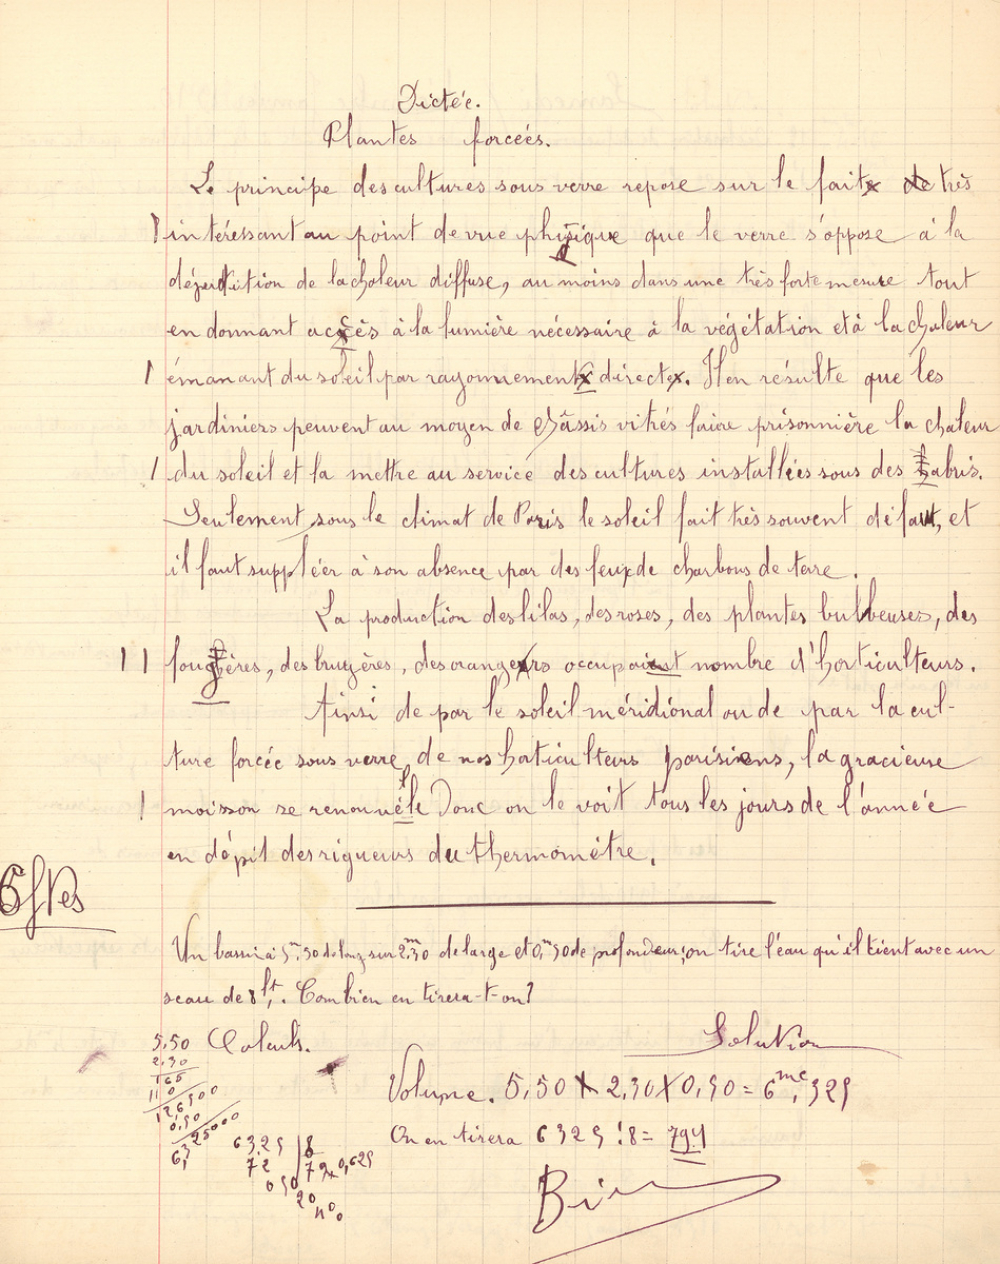 Dictée.
Plantes forceés.
Le principe des cultures sous verre repose sur le fait de très
intéressant au point de vue phisique que le verre s'oppose à la
déperdition de la chaleur diffuse, au moins dans une très forte mesure tout
en donnant accès à la lumière nécessaire à la végétation et à la chaleur
émanant du soleil par rayonnement directe. Il en résulte que les
jardiniers peuvent au moyen de châssis vitrés faire prisonnière la chaleur
du soleil et la mettre au service des cultures installées sous des abris.
Seulement, sous le climat de Paris le soleil fait très souvent défaut, et
il faut suppléer à son absence par des feux de charbons de terre.
La production des lilas, des roses, des plantes bulbeuses, des
fougères, des bruyères, des orangers occupaient nombre d'horticulteurs.
Ainsi de par le soleil méridional ou de par la cul-
ture forcée sous verre, de nos horticulteurs parisiens, la gracieuse
moisson se renouvelle Donc on le voit tous les jours de l'année
en dépit des rigueurs du thermomètre.
6 ftes
Un bassin à 5m,50 de long sur 2m,30 de large et 0m,50 de profondeur; on tire l'eau qu'il tient avec un
seau de 8 lt,. Combien en tirera-t-on?
Calculs.
Solution
5,50
2,30
165
110
126500
0,50
6,325000
Volume. 5,50 X 2,30 X 0,50 = 6mc,325
6325 8
72 79 0,625
050
20
40
0
On en tirera 6325 : 8 = 791
Bien